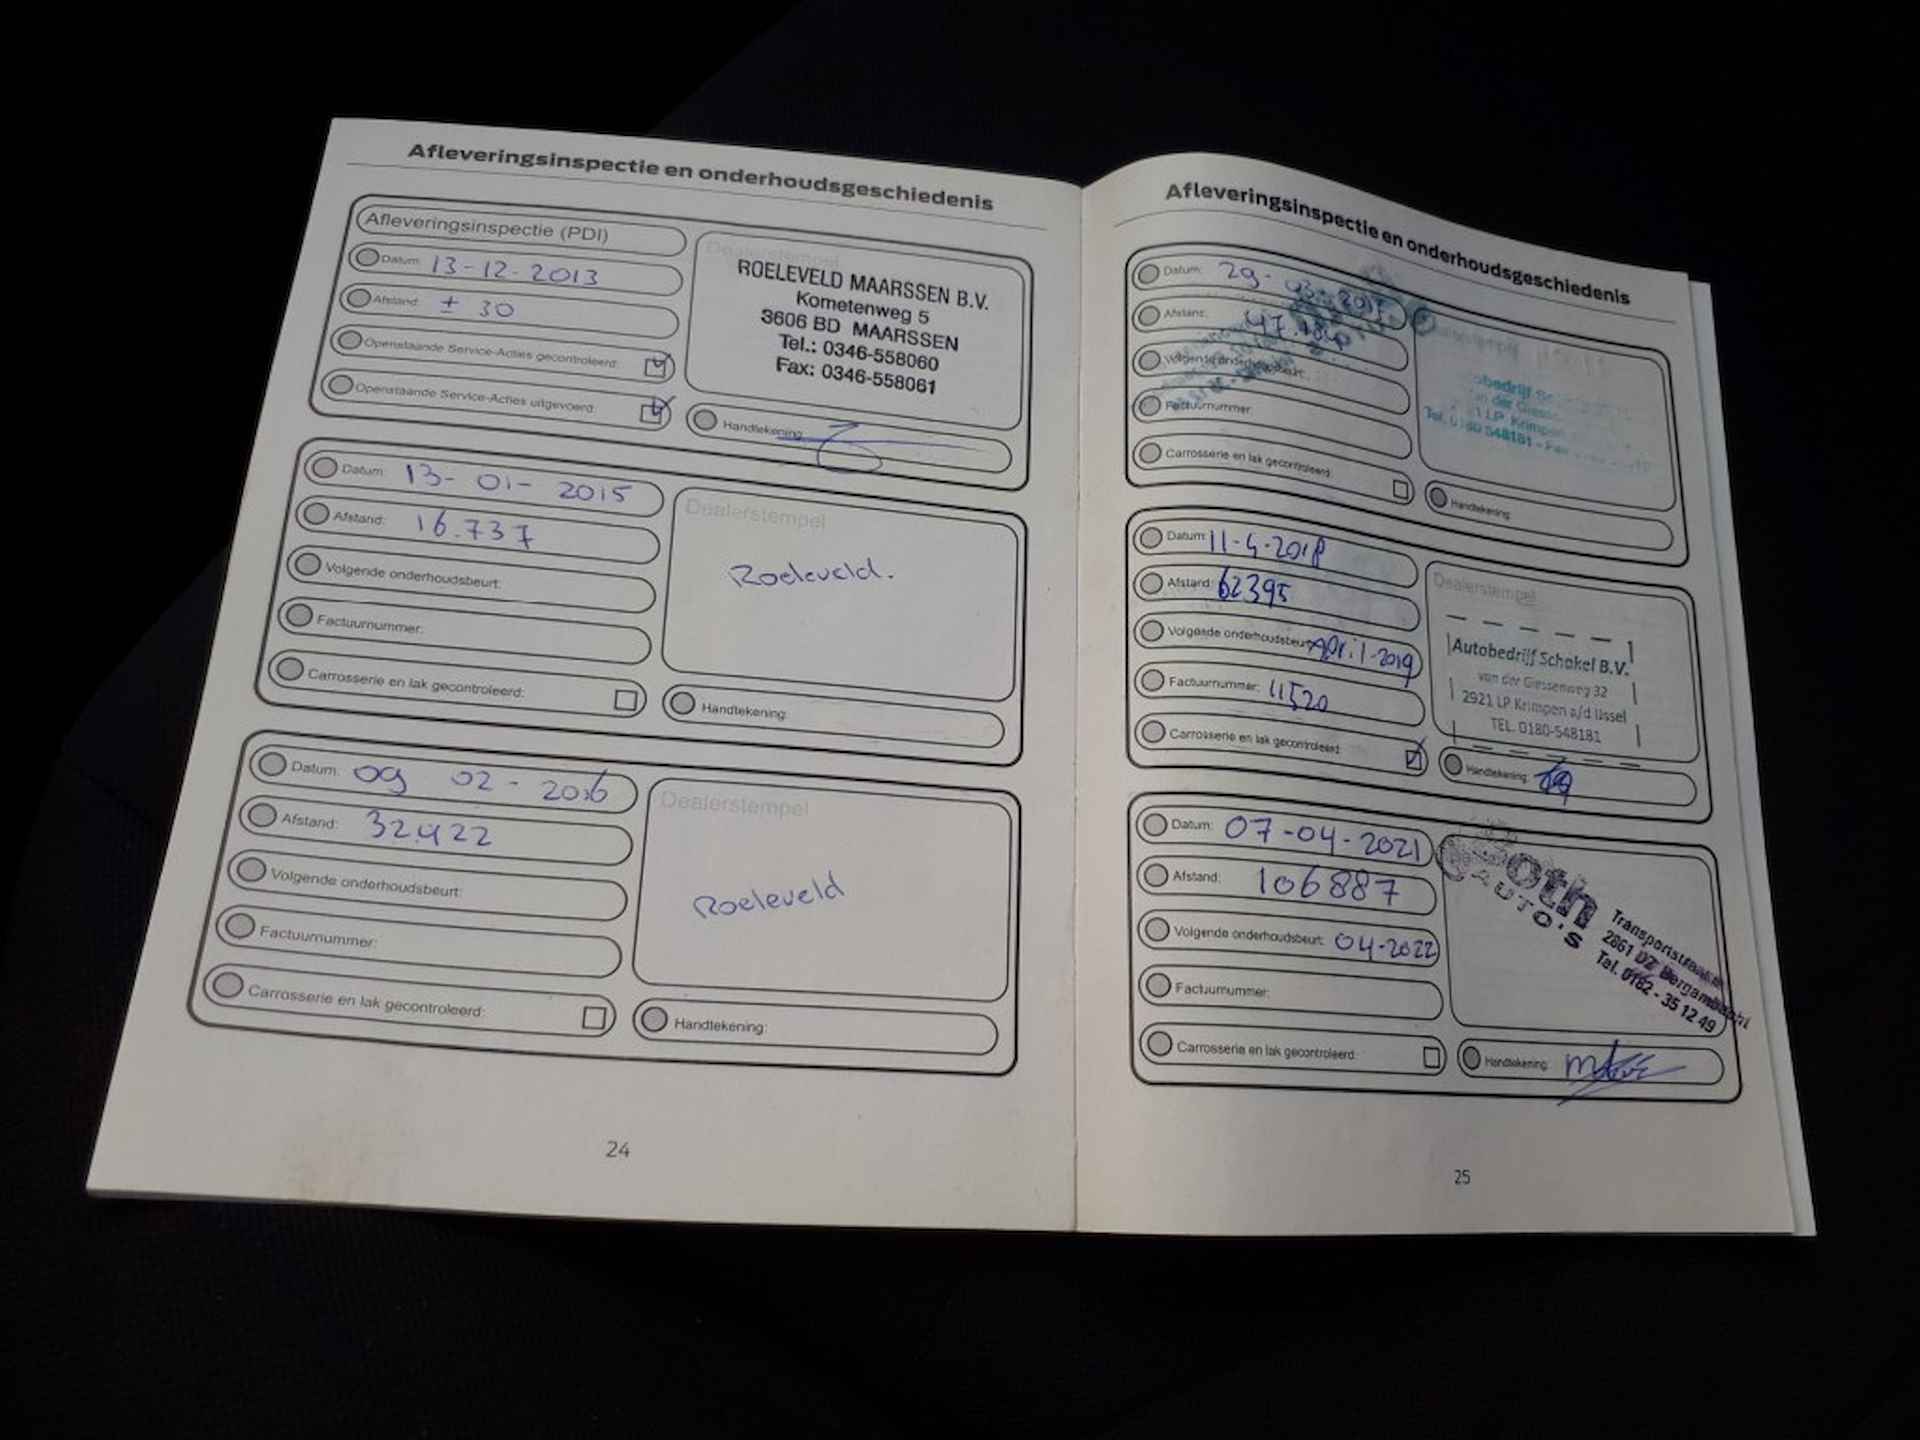 Afleveringsinspectie en onderhoudsgeschiedenis
Afleveringsinspectie (PDI)
Datum: 13-12-2013
Afstand: ± 30
Openstaande Service-Acties gecontroleerd:
Openstaande Service-Acties uitgevoerd:
Dealerstempel
ROELEVELD MAARSSEN B.V.
Kometenweg 5
3606 BD MAARSSEN
Tel.: 0346-558060
Fax: 0346-558061
Handtekening:
Datum: 13-01-2015
Afstand: 16.737
Volgende onderhoudsbeurt:
Factuurnummer:
Carrosserie en lak gecontroleerd:
Dealerstempel
Roeleveld.
Handtekening:
Datum: 09 02-2016
Afstand: 32422
Volgende onderhoudsbeurt:
Factuurnummer:
Carrosserie en lak gecontroleerd:
Dealerstempel
Roeleveld
Handtekening:
24
Afleveringsinspectie en onderhoudsgeschiedenis
Datum: 29-03-
Afstand: 47.
Volgende onderhoudsbeurt:
Factuurnummer:
Carrosserie en lak gecontroleerd:
Krimpen
Tel. 0180 548181
Handtekening:
Datum: 11-4-2018
Afstand: 62395
Volgende onderhoudsbeurt: April-2019
Factuurnummer: 11520
Carrosserie en lak gecontroleerd:
Dealerstempel
Autobedrijf Schakel B.V.
van der Giessenweg 32
2921 LP Krimpen a/d IJssel
TEL. 0180-548181
Handtekening:
Datum: 07-04-2021
Afstand: 106887
Volgende onderhoudsbeurt: 04-2022
Factuurnummer:
Carrosserie en lak gecontroleerd:
AUTO'S
2861 DZ Bergambacht
Tel. 0182 - 35 12 49
Handtekening:
25